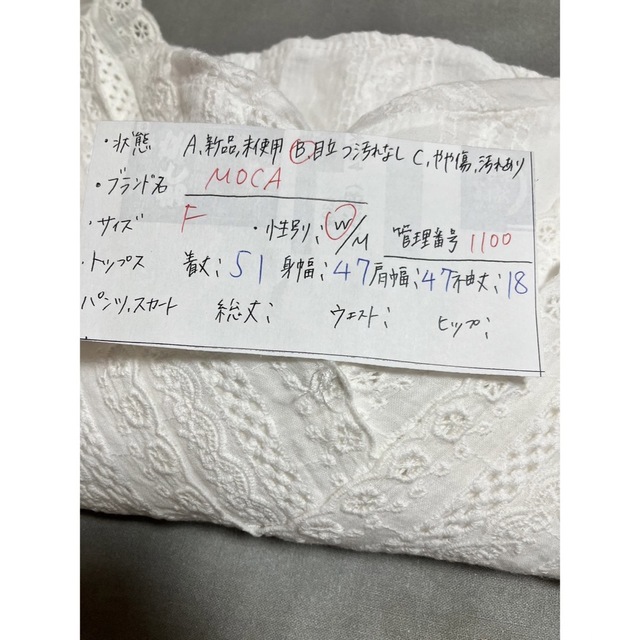 ・状態 A、新品、未使用 B、目立つ汚れなし C、やや傷、汚れあり
・ブランド名 MOCA
・サイズ F ・性別; W/M 管理番号 1100
・トップス 着丈; 51 身幅; 47 肩幅; 47 袖丈; 18
パンツ、スカート 総丈; ウエスト; ヒップ;